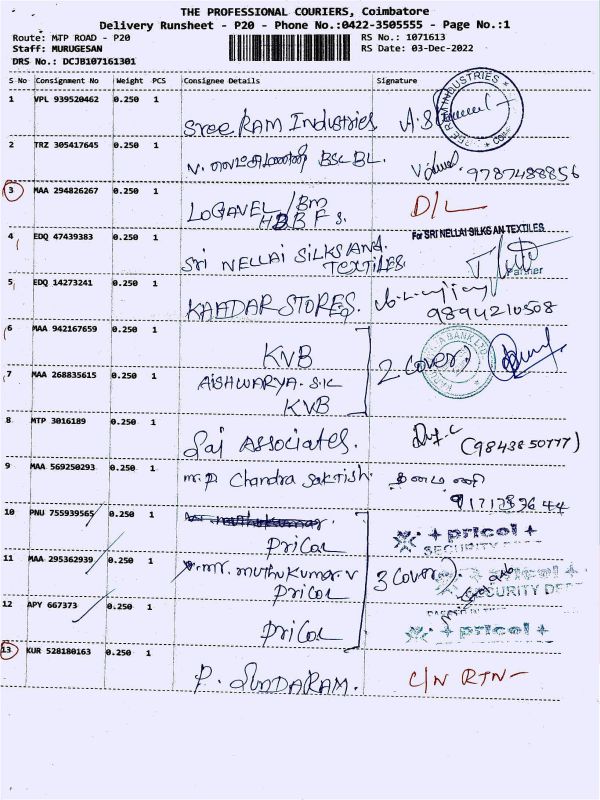 THE PROFESSIONAL COURIERS, Coimbatore
Delivery Runsheet - P20 - Phone No.:0422-3505555 - Page No.:1
Route: MTP ROAD - P20 RS No.: 1071613
Staff: MURUGESAN RS Date: 03-Dec-2022
DRS No.: DCJB107161301
S No Consignment No Weight PCS Consignee Details Signature
1 VPL 939520462 0.250 1
Sree RAM Industries
2 TRZ 305417645 0.250 1
BSc BL. 9787488856
3 MAA 294826267 0.250 1
LOGAVEL / Bm D/L
HBBFS.
4 EDQ 47439383 0.250 1 For SRI NELLAI SILKS AN TEXTILES
Sri NELLAI SILKS AND
TEXTILES Partner
5 EDQ 14273241 0.250 1
KAADAR STORES. 9894210508
6 MAA 942167659 0.250 1
KVB 2 Cover
7 MAA 268835615 0.250 1
AISHWARYA. S.K
KVB
8 MTP 3016189 0.250 1
Sai Associates. (9843850777)
9 MAA 569250293 0.250 1
mr. P Chandra Saktish.
10 PNU 755939565 0.250 1
Pricol + pricol +
SECURITY
11 MAA 295362939 0.250 1
mr. muthu Kumar. V 3 Cover pricol +
Pricol SECURITY DEPT
12 APY 667373 0.250 1
Pricol + pricol +
13 KUR 528180163 0.250 1
P. SUNDARAM. C/N RTN-